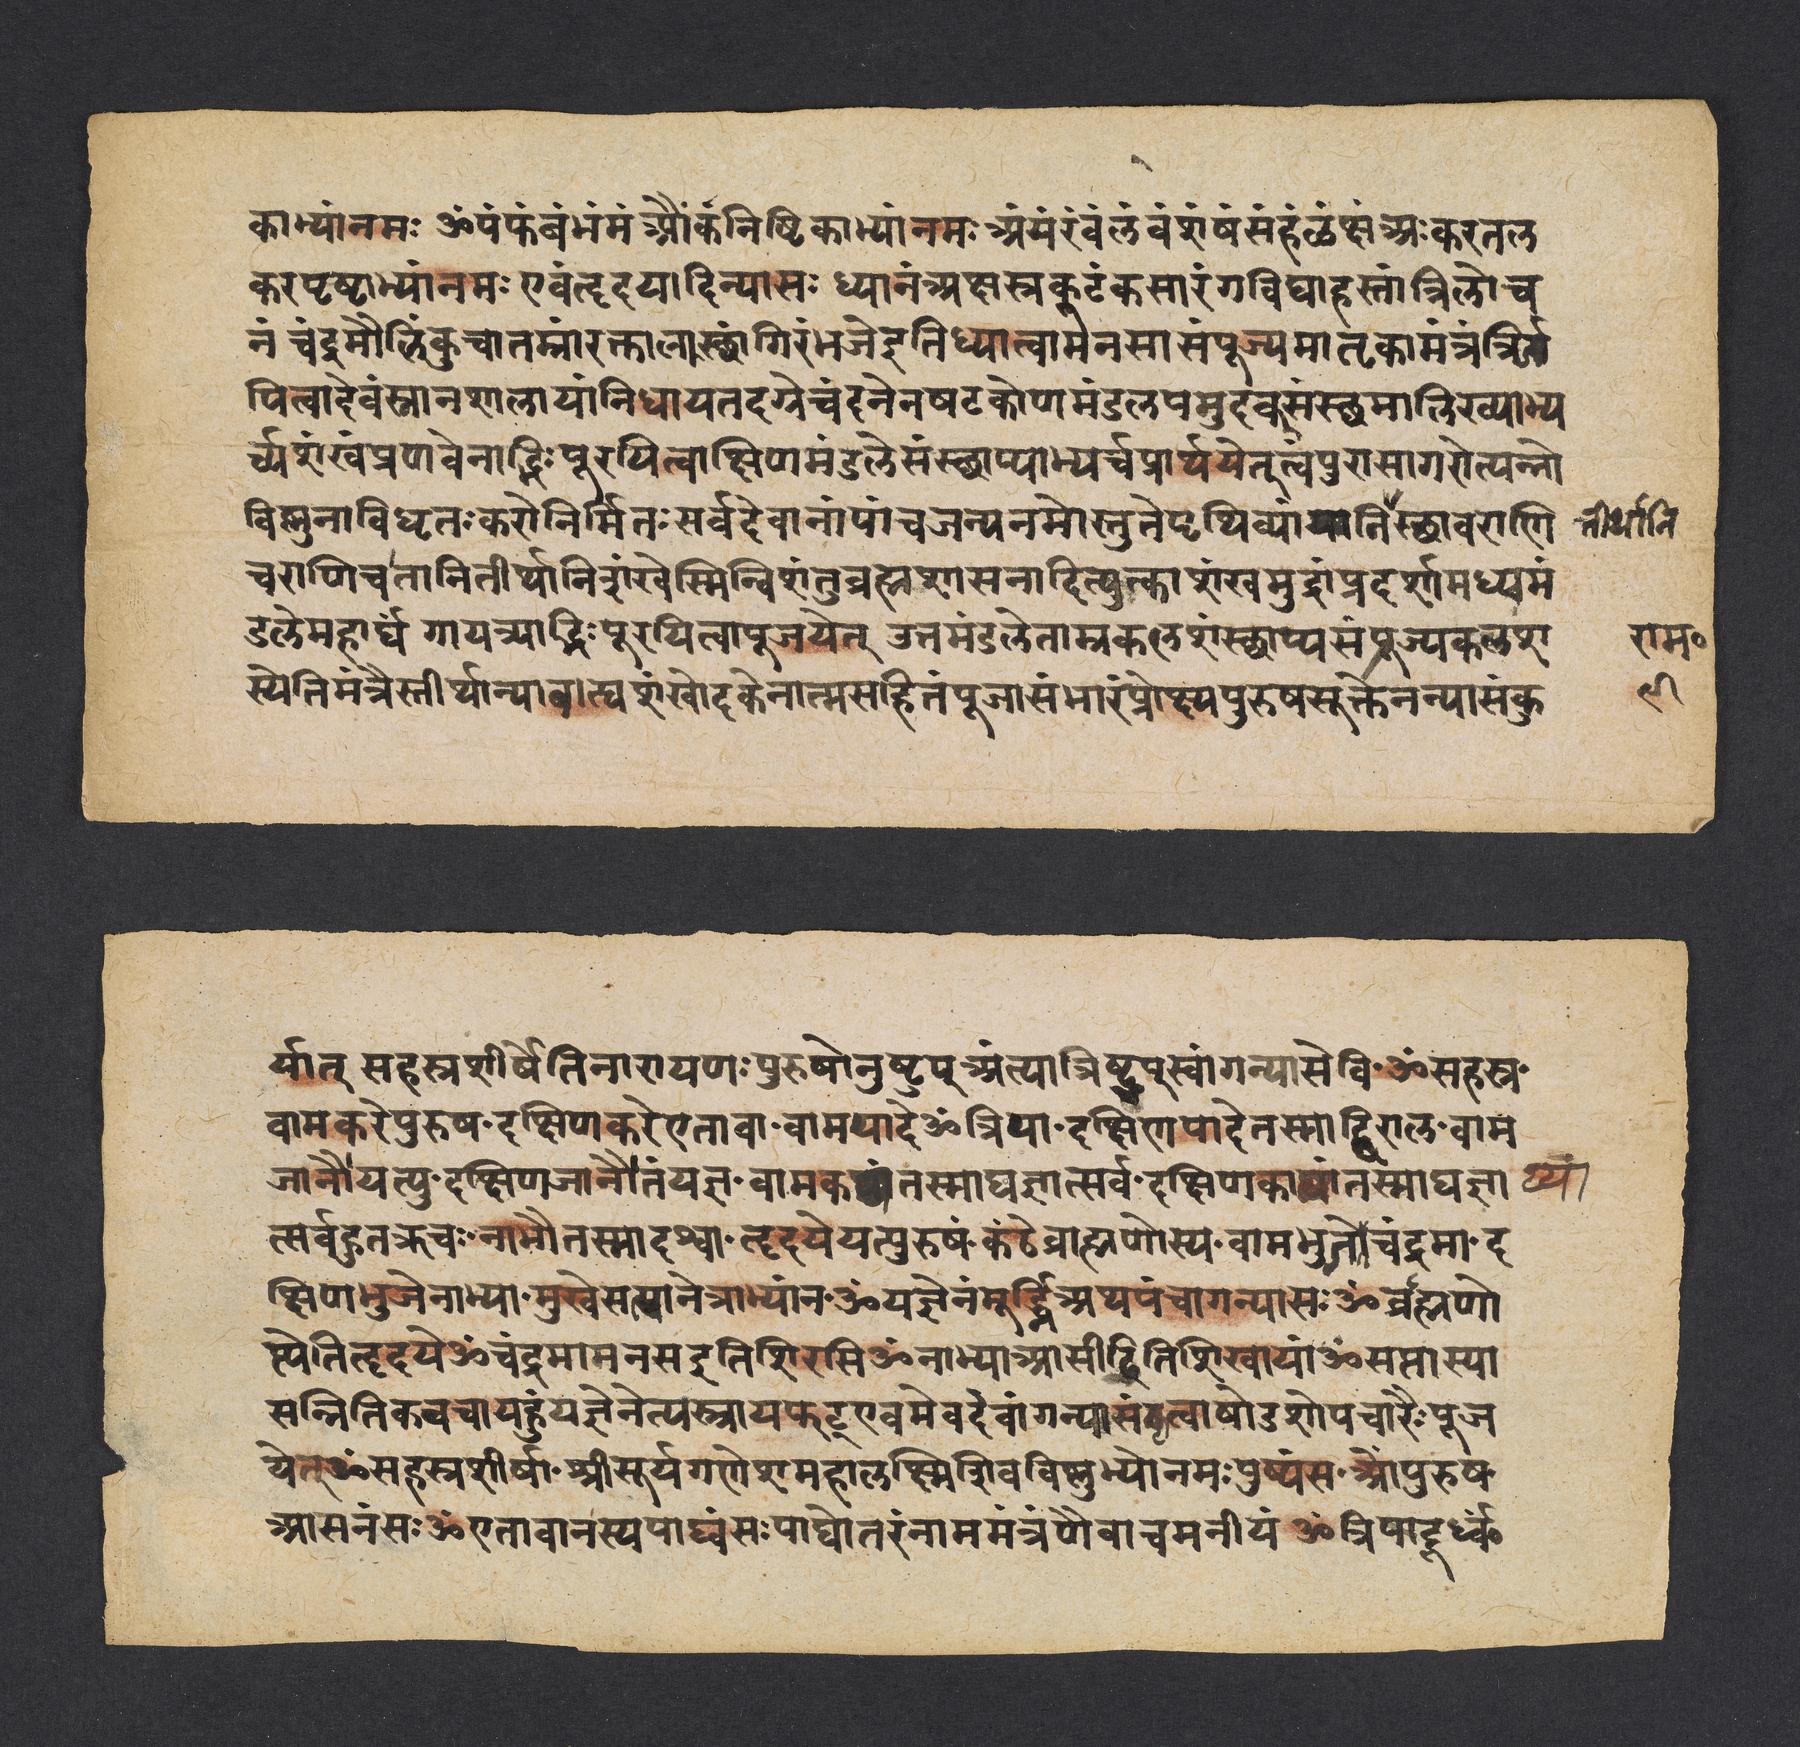 काभ्यांनमः ॐपंफंबंभंमं औंकनिष्टिकाभ्यांनमः अंयंरंवंलंवंशंषंसंहंळंक्षंअःकरतल
करपृष्टाभ्यांनमः एवंहृदयादिन्यासः ध्यानंअक्षस्त्रकूटंकसारंगविद्याहस्तांत्रिलोच
नं चंद्रमौलिंकुचातम्नांरक्तालास्छांगिरंभजेइतिध्यात्वामनसासंपूज्यमातृकामंत्रंत्रिर्ज
पित्वादेवंस्नानशालायांनिधायतदग्रेचंदनेनषटकोणमंडलपमुदकसंस्छमालिख्याभ्य
र्च्यशंखंप्रणवेनाद्भिःपूरयित्वाक्षिणमंडलेसंस्छाप्याभ्यर्च्यप्रार्थयेत्त्वंपुरासागरोत्पन्नो
विष्णुनाविधृतःकरोनिर्मितःसर्वदेवानांपांचजन्यनमोस्तुतेपृथिव्यांयानिस्छावराणि तीर्थानि
चराणिचतानितीर्थानिशंखेस्मिन्विशंतुब्रह्मशासनादित्युक्ताशंखमुद्रांप्रदर्शामध्यमं
डलेमहार्घं गायत्र्याद्भिःपूरयित्वापूजयेत् उत्तमंडलेताम्रकलशंस्छाप्यसंपूज्यकलश राम॰
स्येतिमंत्रैस्तीर्थान्यावात्द्यशंखोदकेनात्मसहितंपूजासंभारंप्रोक्ष्यपुरुषसूक्तेनन्यासंकु
र्यात् सहस्रशीर्षेतिनारायणःपुरुषोनुष्टुप्अंत्यात्रिष्टुप्स्वांगन्यासेवि॰ॐसहस्र॰
वामकरेपुरुष॰दक्षिणकरेएतावा॰वामपादेॐत्रिपा॰दक्षिणपादेतस्माद्विराल॰वाम
जानौयत्पु॰दक्षिणजानौतंयज्ञ॰वामकट्यांतस्माद्यज्ञात्सर्व॰दक्षिणकट्यांतस्माद्यज्ञा ट्यां
त्सर्वहुतऋचः॰नाभौतस्मादश्वा॰हृदयेयत्पुरुषं॰कंठेब्राह्मणोस्य॰वामभुजेचंद्रमा॰द
क्षिणभुजेनाभ्या॰मुखेसप्तानेत्राभ्यांन॰ॐयज्ञेनंमूर्द्ध्निअथपंचागन्यासःॐर्ब्रह्मणो
स्येतिहृदयेॐचंद्रमामनसइतिशिरसिॐनाभ्याआसीद्वितिशिखायांॐसप्तास्या
सन्नितिकवचायहुंयज्ञेनेत्यस्त्रायफट्एवमेवदेवांगन्यासंकृत्वाषोडशोपचारैःपूज
येत्ॐसहस्रशीर्षा॰श्रीसूर्यगणेशमहालक्ष्मिशिवविष्णुभ्योनमःपुष्पंस॰औंपुरुष॰
आसनंसःॐएतावानस्यपाद्यंसःपाद्योतरंनाममंत्रंणैवाचमनीयं ॐत्रिपादूर्ध्व॰